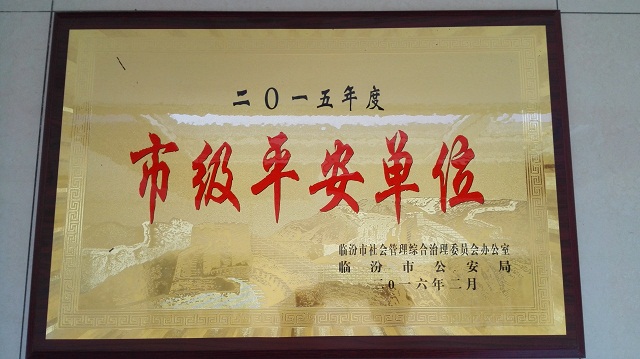 二〇一五年度
市级平安单位
临汾市社会管理综合治理委员会办公室
临汾市公安局
二〇一六年二月